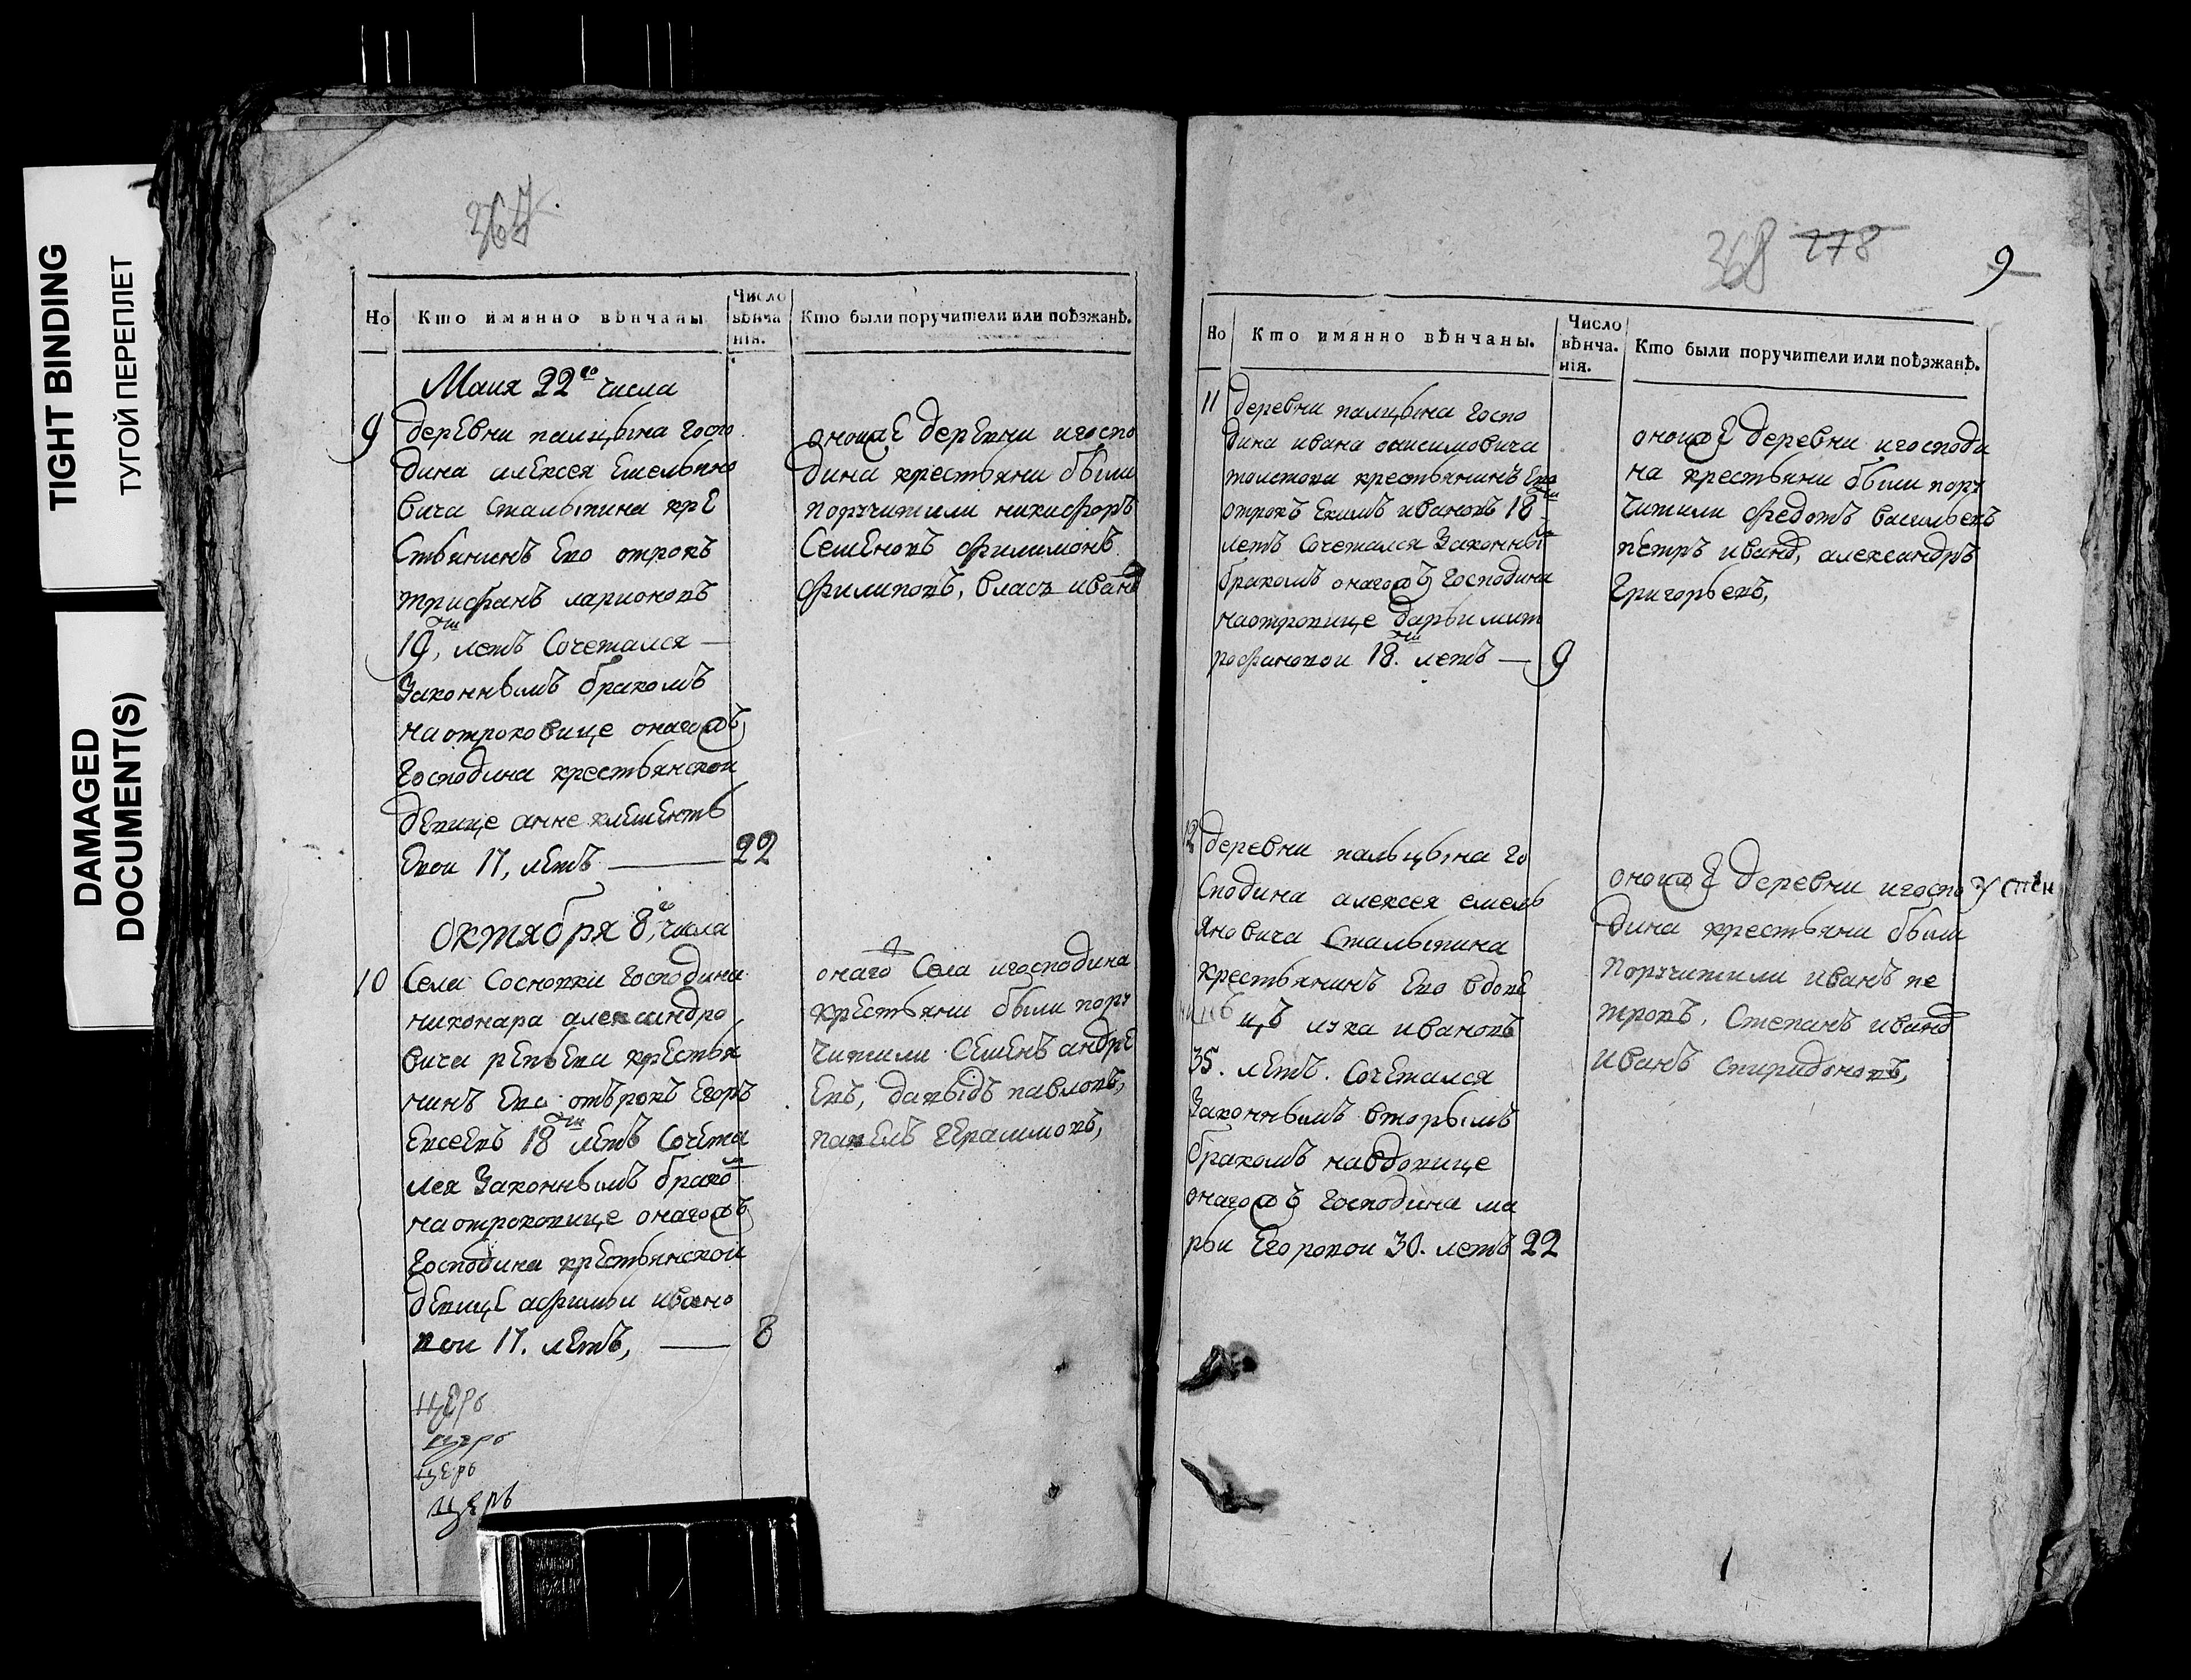 TIGHT BINDING
ТУГОЙ ПЕРЕПЛЕТ
DAMAGED
DOCUMENT(S)
367
Но
Кто имянно вѣнчаны
Число
вѣнча
нія.
Кто были поручители или поѣзжанѣ.
Маия 22го числа
9
деревни пальцына госпо
дина алексея Емельяно
вича Сталыпина кре
Стьянинъ Ево отрокъ
трифанъ ларионовъ
19ти, летъ Сочетался
Законнымъ бракомъ
наотроковице онагожъ
Господина крестьянской
девице анне клементь
Евои 17, летъ
22
оноиже деревни игоспо
дина крестьяни были
поручители никифоръ
Семеновъ филимонъ
филиповъ, власъ иванов
Октября 8го, числа
10
Села Сосновки Господина
никонара александро
вича репьева крестья
нинъ Ево отърокъ Егоръ
Евсеевъ 18ти летъ Сочета
лся Законнымъ браком
наотроковице онагожъ
Господина крестьянской
девице афимьи ивано
вои 17. летъ,
8
онаго Села игосподина
крестьяни были пору
чители Семенъ андре
Евъ, давыдъ павловъ,
павелъ герасимовъ,
церь
церь
церь
церь
368 278
9
Но
Кто имянно вѣнчаны.
Число
вѣнча.
нія.
Кто были поручители или поѣзжанѣ.
11
деревни палцына госпо
дина ивана онисимовича
толстова крестьянинъ Ево
отрокъ Екимъ ивановъ 18ти
летъ Сочетался Законным
бракомъ онагожъ Господина
наотровице дарьи мит
рофановои 18ти. летъ
9
оноиже деревни игосподи
на крестьяни были пору
чители федотъ васильевъ
петръ иванов, александръ
Григорьевъ,
12
деревни пальцына го
Сподина алексея емель
Яновича Сталыпина
крестьянинъ Ево вдове
цъ лука ивановъ
35. летъ. Сочетался
Законнымъ вторымъ
бракомъ навдовице
онагожъ Господина ма
рьи Егоровои 30. летъ
22
оноиже деревни игоспо
дина крестьяни были
поручители иванъ пе
тровъ, Степанъ иванов
иванъ Спиридоновъ,